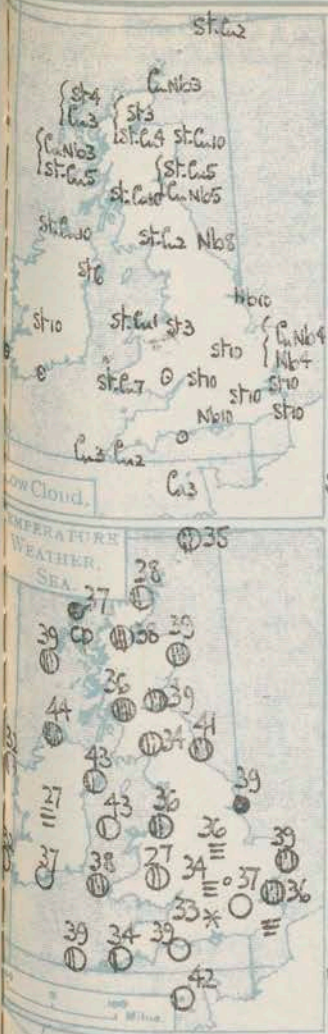 St.Cu2
CuNb3
St4
Cu3
St3
St.Cu4 St.Cu10
CuNb3
St.Cu5
St.Cu5
CuNb5
St.Cu10
St.Cu10
St.Cu2 Nb8
St6
Nb10
St10
St.Cu1 St3
CuNb4
Nb4
St10
St.Cu7
St10
St10
St10
Nb10
St10
Cu3 Cu2
Cu3
Low Cloud.
TEMPERATURE
WEATHER.
SEA.
35
28
37
CP
38
39
39
36
39
44
34
41
43
39
27
43
36
36
39
37
38
27
34
37
36
33
39
34
39
42
Miles.